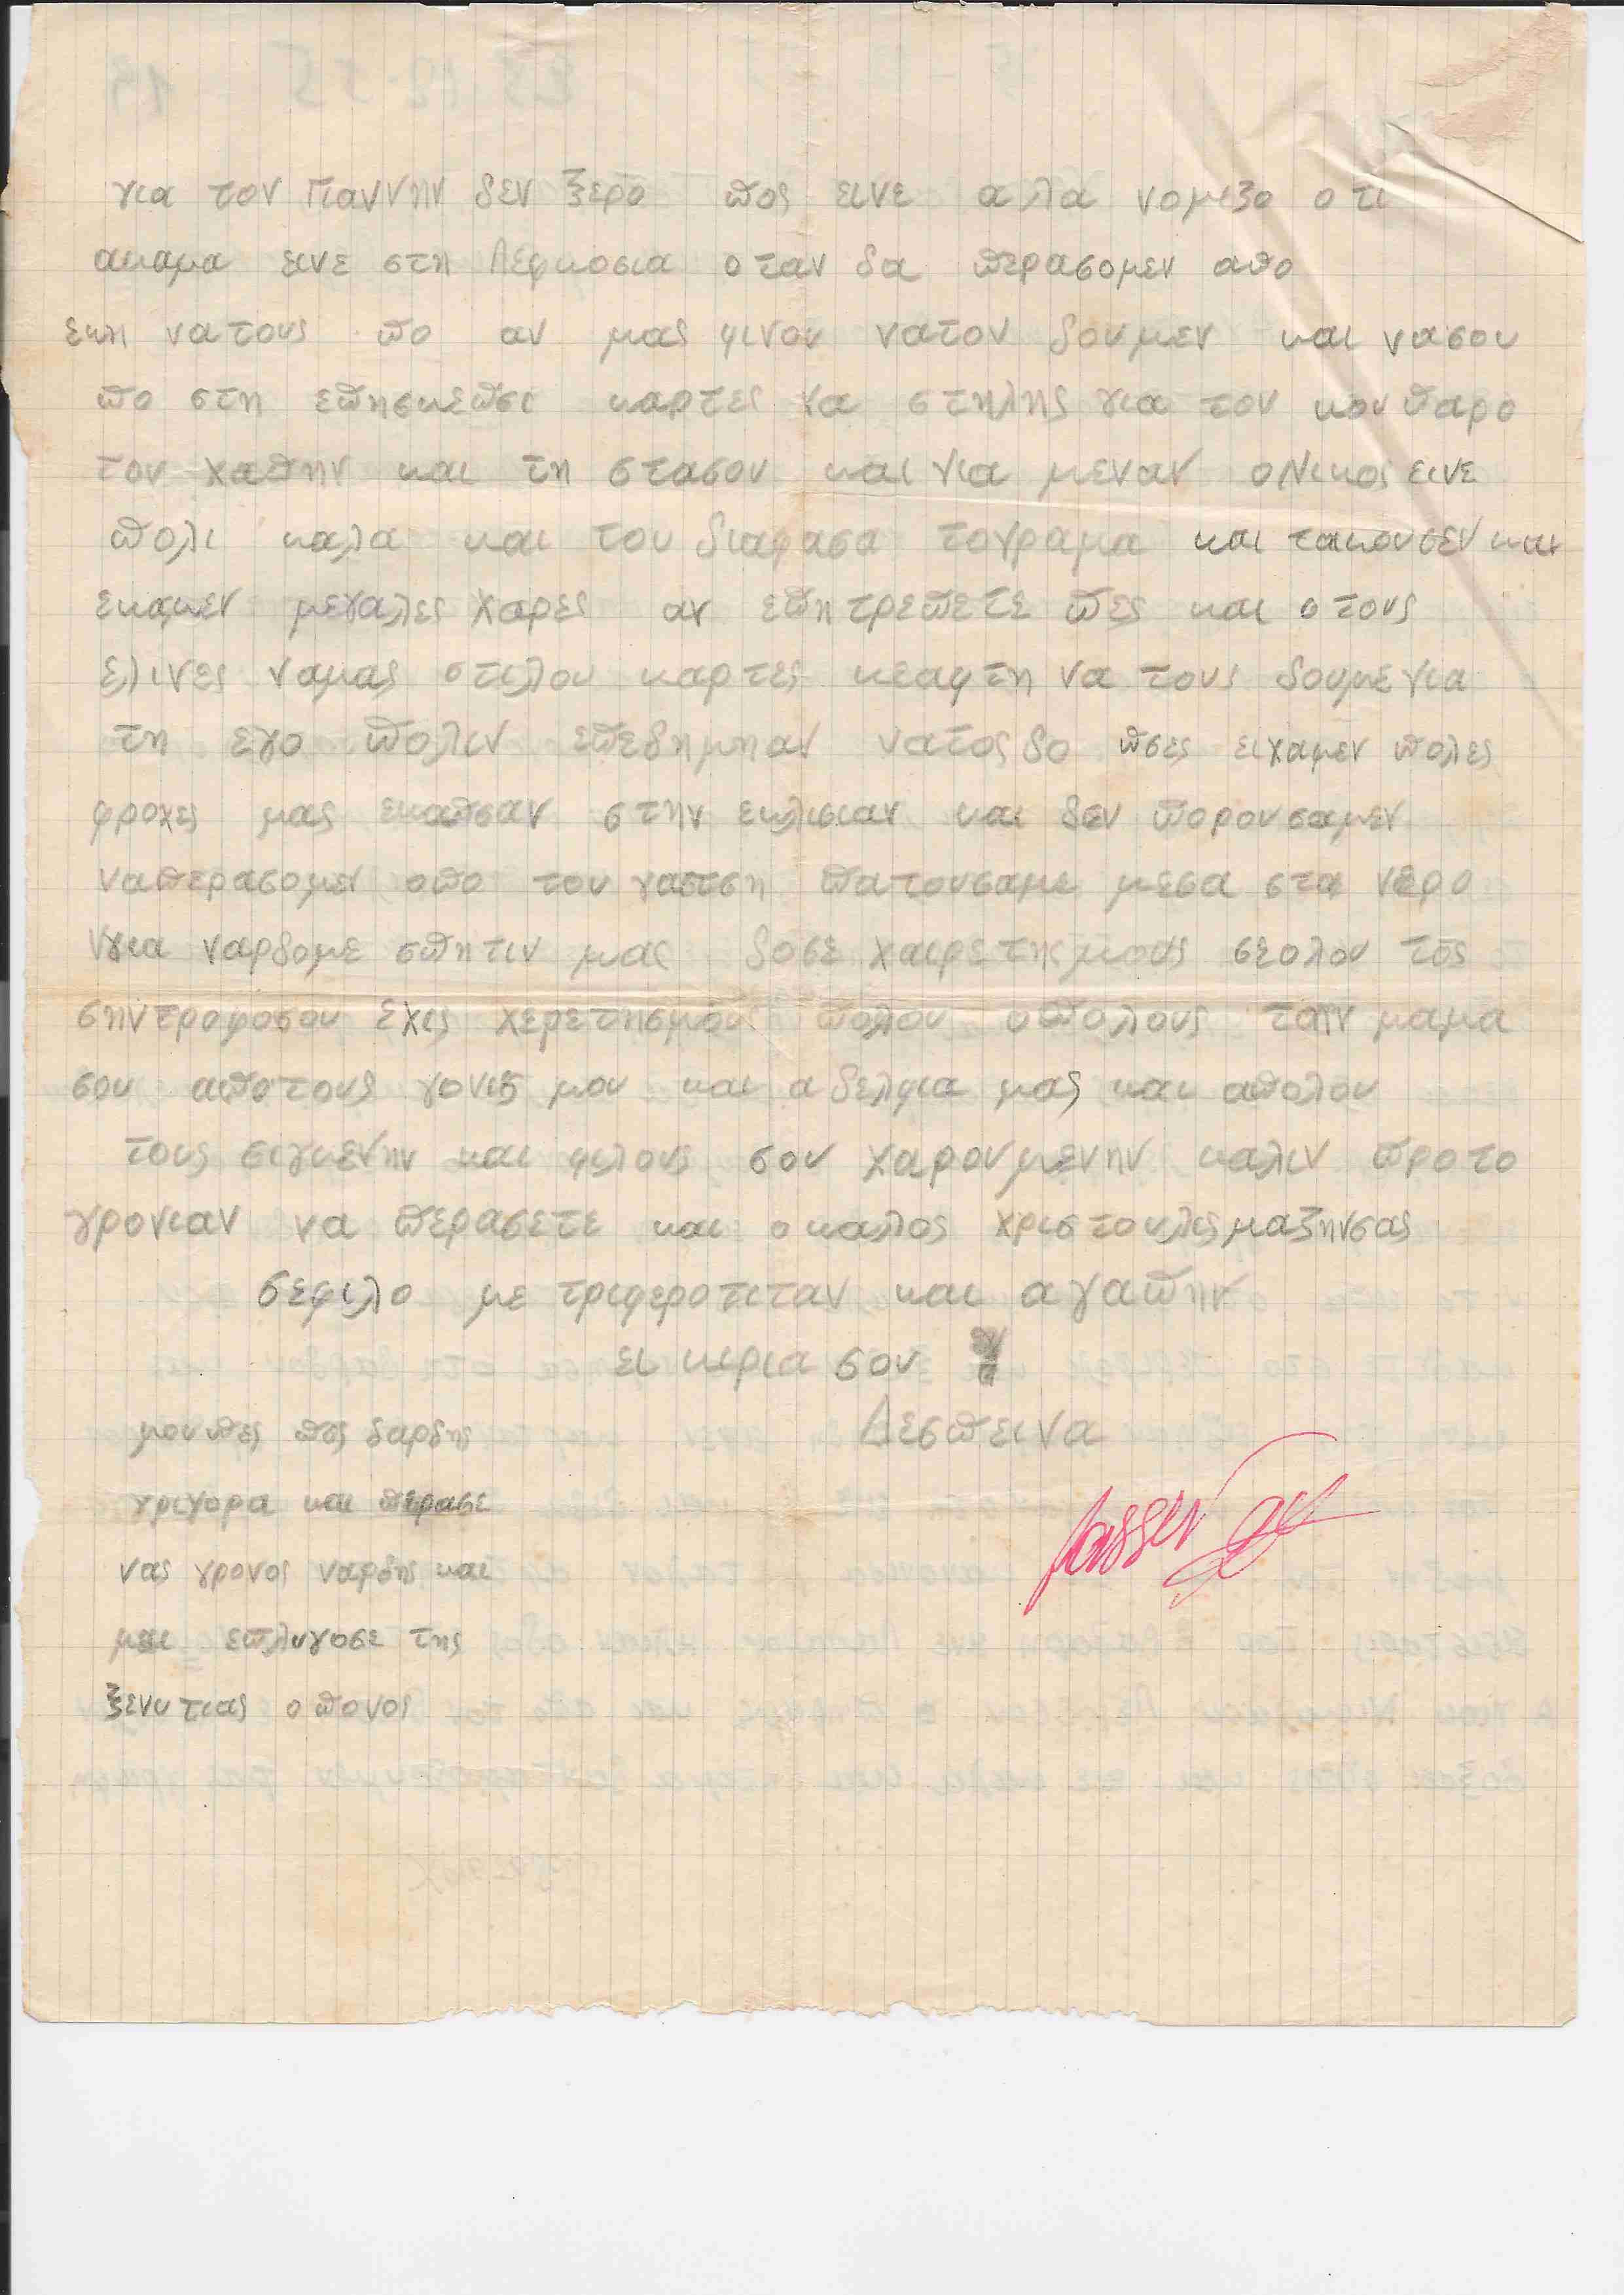 για τον Γιαννην δεν ξερο πος εινε αλα νομιζο οτι
ακαμα εινε στη Λεφκοσια οταν δα περασομεν απο
εκι να τους πο αν μας φινου νατον δουμεν και νασου
πο στη επησκεπσι καρτες να στηλης για τον κουπαρο
τον χαπην και τη στασου και για μεναν ο Νικος εινε
πολι καλα και του διαφασα τογραμα και τακουσεν και
εκαμεν μεγαλες χαρες αν επητρεπετε πες και οτους
ελινες ναμας στιλου καρτες κεαφτη να τους δουμε για
τη εγο πολιν επεδημηαν νατος δο πσες ειχαμεν πολες
φροχες μας εκαπσαν στην εκλισιαν και δεν πορουσαμεν
ναπερασομεν οπο τον γαπτση πατουσαμε μεσα στα νερο
για ναρδομε σπητιν μας δοσε χαιρετησμους σεολου τος
σηντροφοσου εχις χερετησμους πολου οπολους την μαμα
σου αποτους γονις μου και αδελφια μας και απολου
τους σιγκενην και φιλους σου χαρουμενην καλιν προτο
γρονιαν να περασετε και ο καλος χριστουλις μαζηνσας
σεφιλο με τριφεροτιταν και αγαπην
ει κιρια σου
Δεσπεινα
μουπες πος δαρδης
γριγορα και περασε
νας γρονος ναρδης και
με επλυγοσε της
ξενυτιας ο πονος